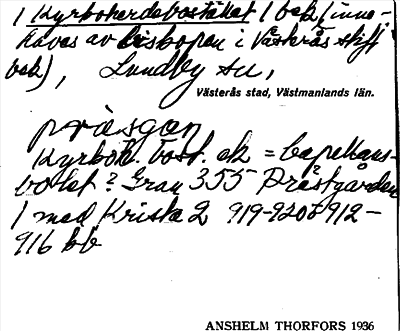 1 Kyrboherdebostället 1 bek (inne-
haves av biskopen i Västerås stift
bek), Lundby sn,
Västerås stad, Västmanlands län.
präsgan
Kyrboh. bost. ek = kapellans-
bolet? Gran 355 Prästgården
1 med Krista 2 919-920 o 912-
916 bb
ANSHELM THORFORS 1936